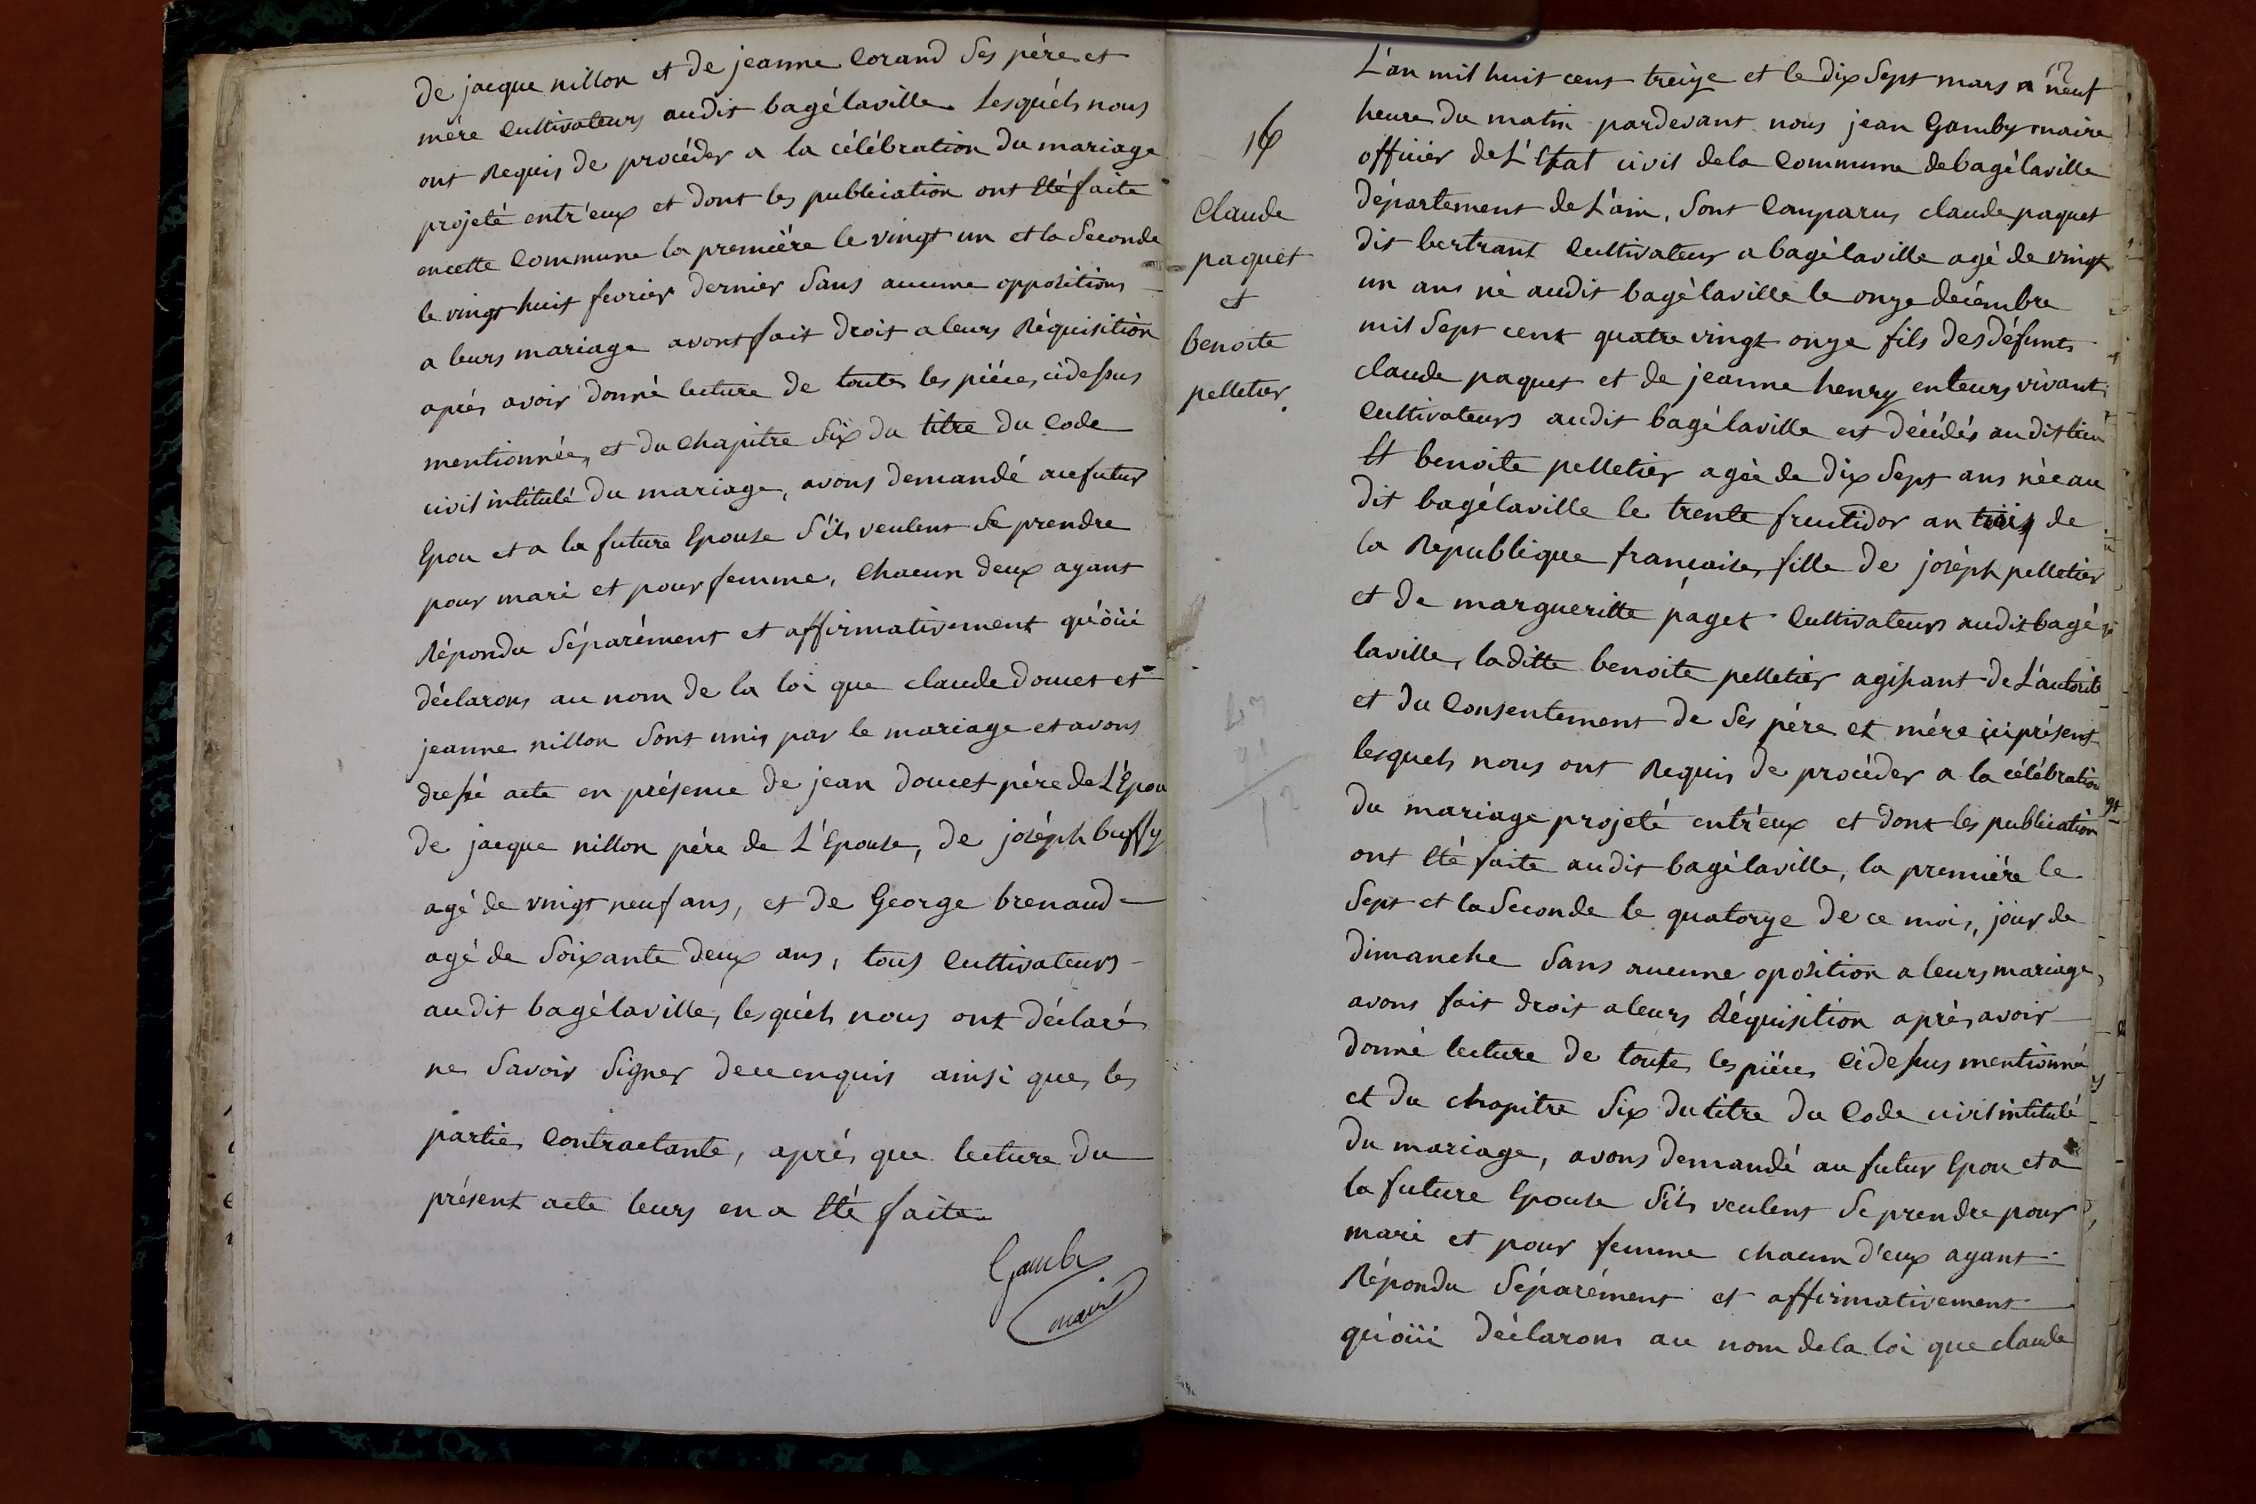 de jacque nillon et de jeanne Corand Ses pére et
mére Cultivateurs audit bagélaville Lesquéls nous
ont Requis de procéder a la célébration du mariage
projeté entr'eux et dont les publication ont été faite
encette Commune la premiére le vingt un et la Seconde
le vingt huit fevrier dernier Sans aucune oppositions
a leurs mariage avons fait droit a leurs Réquisition
aprés avoir donné lecture de toutes les piéces cidessus
mentionnées, et du Chapitre Six du titre du Code
civil intitulé du mariage, avons demandé au futur
Epou et a la future Epouse S'ils veulent Se prendre
pour mari et pour femme, Chacun deux ayant
Répondu Séparément et affirmativement qu'öüi
déclarons au nom de la loi que claude doucet et
jeanne nillon Sont unis par le mariage et avons
dressé acte en présence de jean doucet pére de L'Epou
de jacque nillon pére de L'Epouse, de joséph buffy
agé de vingt neuf ans, et de George brenaud
agé de Soixante deux ans, tous Cultivateurs
audit bagélaville, lesquéls nous ont déclaré
ne Savoir Signer dece enquis ainsi que les
parties Contractante, aprés que lecture du
présent acte leurs en a été faite
Gamby
maire
12
L'an mil huit cent treize et le dix Sept mars a neuf
heure du matin pardevant nous jean Gamby maire
officier de L'Etat civil dela Commune debagélaville
département de L'ain, Sont Comparus claude paquet
dit bertrant Cultivateur a bagélaville agé de vingt
un ans né audit bagélaville le onze décémbre
mil Sept cent quatre vingt onze fils des défunts
claude paquet et de jeanne henry enleurs vivant
Cultivateurs audit bagélaville et décédés audit lieu
Et benoite pelletier agée de dix Sept ans née au
dit bagélaville le trente fructidor an trois de
la République francaise, fille de joséph pelletier
et de margueritte paget Cultivateurs audit bagé
laville, laditte benoite pelletier agissant de L'autorité
et du Consentement de Ses pére et mére ici présent
lesquels nous ont Requis de procéder a la célébration
du mariage projeté entr'eux et dont les publication
ont été faite audit bagélaville, la premiére le
Sept et la Seconde le quatorze de ce mois, jour de
dimanche Sans aucune oposition a leurs mariage,
avons fait droit a leurs Réquisition aprés avoir
donné lecture de toute les piéces cidessus mentionné
et du chapitre Six du titre du Code civil intitulé
du mariage, avons demandé au futur Epou et a
la future Epouse S'ils veulent Se prendre pour
mari et pour femme chacun d'eux ayant
Répondu Séparément et affirmativement
qu'öüi déclarons au nom de la loi que claude
16
Claude
paquet
et
benoite
pelletier